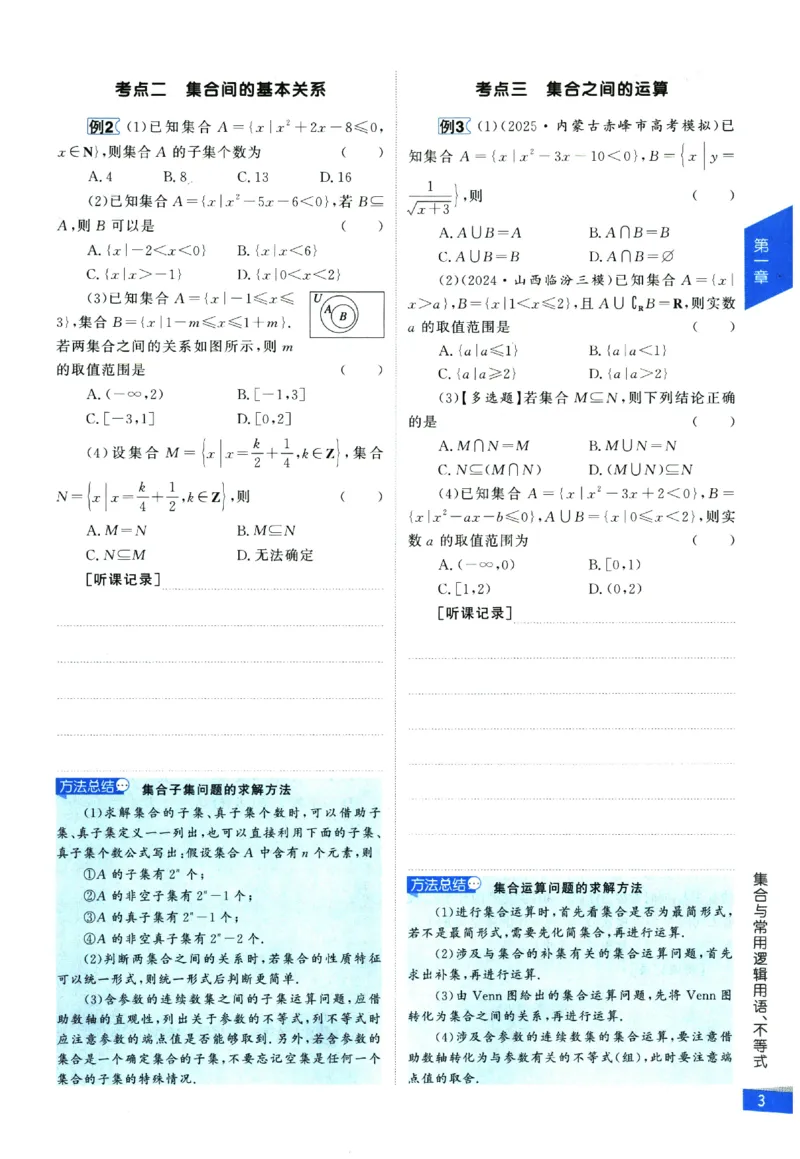 考点二 集合间的基本关系
例2 (1)已知集合 A={x|x²+2x-8≤0,
x∈N},则集合 A 的子集个数为 ( )
A.4 B.8 C.13 D.16
(2)已知集合 A={x|x²-5x-6<0},若 B⊆
A,则 B 可以是 ( )
A.{x|-2<x<0} B.{x|x<6}
C.{x|x>-1} D.{x|0<x<2}
(3)已知集合 A={x|-1≤x≤
3},集合 B={x|1-m≤x≤1+m}.
U A B
若两集合之间的关系如图所示,则 m
的取值范围是 ( )
A.(-∞,2) B.[-1,3]
C.[-3,1] D.[0,2]
(4)设集合 M={x|x=k/2+1/4,k∈Z},集合
N={x|x=k/4+1/2,k∈Z},则 ( )
A.M=N B.M⊆N
C.N⊆M D.无法确定
[听课记录]
方法总结 集合子集问题的求解方法
(1)求解集合的子集、真子集个数时,可以借助子
集、真子集定义一一列出,也可以直接利用下面的子集、
真子集个数公式写出:假设集合 A 中含有 n 个元素,则
①A 的子集有 2ⁿ 个;
②A 的非空子集有 2ⁿ-1 个;
③A 的真子集有 2ⁿ-1 个;
④A 的非空真子集有 2ⁿ-2 个.
(2)判断两集合之间的关系时,若集合的性质特征
可以统一形式,则统一形式后判断更简单.
(3)含参数的连续数集之间的子集运算问题,应借
助数轴的直观性,列出关于参数的不等式,列不等式时
应注意参数的端点值是否能够取到.另外,若含参数的
集合是一个确定集合的子集,不要忘记空集是任何一个
集合的子集的特殊情况.
考点三 集合之间的运算
例3 (1)(2025·内蒙古赤峰市高考模拟)已
知集合 A={x|x²-3x-10<0},B={x|y=
1/√(x+3)},则 ( )
A.A∪B=A B.A∩B=B
C.A∪B=B D.A∩B=∅
(2)(2024·山西临汾三模)已知集合 A={x|
x>a},B={x|1<x≤2},且 A∪∁RB=R,则实数
a 的取值范围是 ( )
A.{a|a≤1} B.{a|a<1}
C.{a|a≥2} D.{a|a>2}
(3)【多选题】若集合 M⊆N,则下列结论正确
的是 ( )
A.M∩N=M B.M∪N=N
C.N⊆(M∩N) D.(M∪N)⊆N
(4)已知集合 A={x|x²-3x+2<0},B=
{x|x²-ax-b≤0},A∪B={x|0≤x<2},则实
数 a 的取值范围为 ( )
A.(-∞,0) B.[0,1)
C.[1,2) D.(0,2)
[听课记录]
方法总结 集合运算问题的求解方法
(1)进行集合运算时,首先看集合是否为最简形式,
若不是最简形式,需要先化简集合,再进行运算.
(2)涉及与集合的补集有关的集合运算问题,首先
求出补集,再进行运算.
(3)由 Venn 图给出的集合运算问题,先将 Venn 图
转化为集合之间的关系,再进行运算.
(4)涉及含参数的连续数集的集合运算,要注意借
助数轴转化为与参数有关的不等式(组),此时要注意端
点值的取舍.
第一章
集合与常用逻辑用语、不等式
3